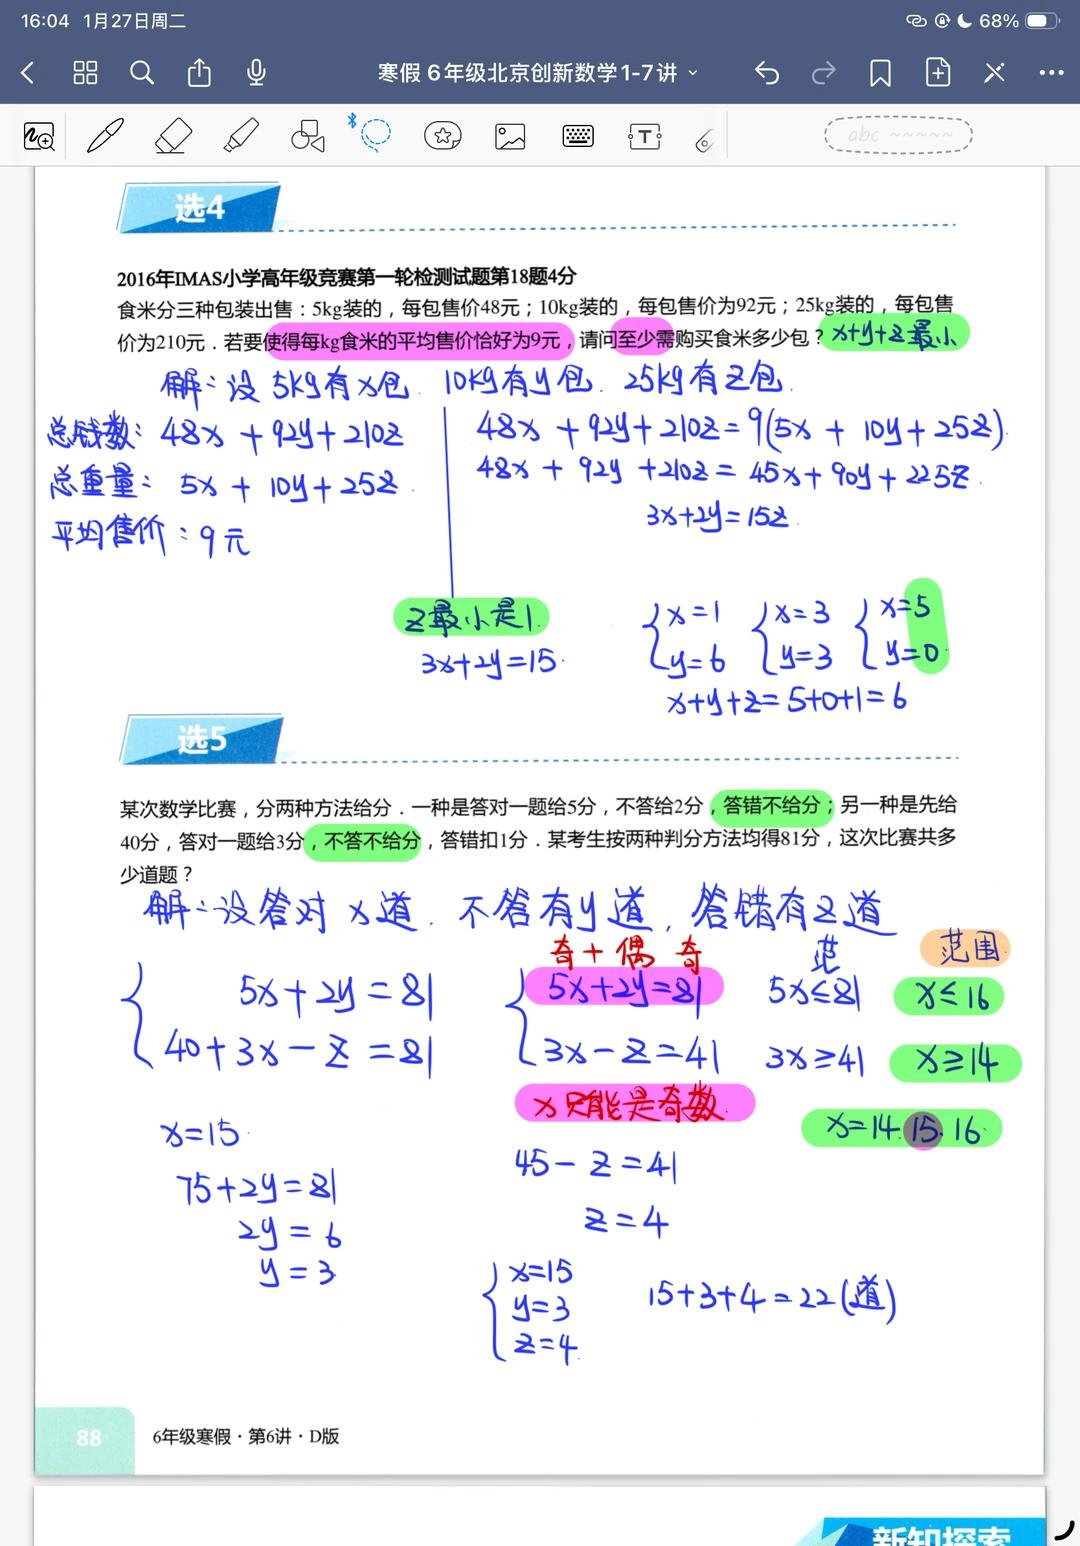 16:04 1月27日周二
68%
寒假 6年级北京创新数学1-7讲
abc
选4
2016年IMAS小学高年级竞赛第一轮检测试题第18题4分
食米分三种包装出售：5kg装的，每包售价48元；10kg装的，每包售价为92元；25kg装的，每包售
价为210元．若要使得每kg食米的平均售价恰好为9元，请问至少需购买食米多少包？ x+y+z最小
解：设 5kg有x包. 10kg有y包. 25kg有z包.
总钱数：48x + 92y + 210z
总重量：5x + 10y + 25z.
平均售价：9元
48x + 92y + 210z = 9(5x + 10y + 25z).
48x + 92y + 210z = 45x + 90y + 225z.
3x+2y = 15z.
z最小是1.
3x+2y=15.
{x=1 {x=3 {x=5
{y=6 {y=3 {y=0
x+y+z = 5+0+1 = 6
选5
某次数学比赛，分两种方法给分．一种是答对一题给5分，不答给2分，答错不给分；另一种是先给
40分，答对一题给3分，不答不给分，答错扣1分．某考生按两种判分方法均得81分，这次比赛共多
少道题？
解：设答对 x道. 不答有y道. 答错有z道
奇 + 偶 奇 范 范围
{5x+2y=81 {5x+2y=81 5x≤81 x≤16
{40+3x-z=81 {3x-z=41 3x≥41 x≥14
x只能是奇数. x=14.15.16.
x=15.
75+2y=81
2y = 6
y = 3
45-z=41
z=4
{x=15
y=3
z=4.
15+3+4=22(道)
88 6年级寒假·第6讲·D版
新知探索